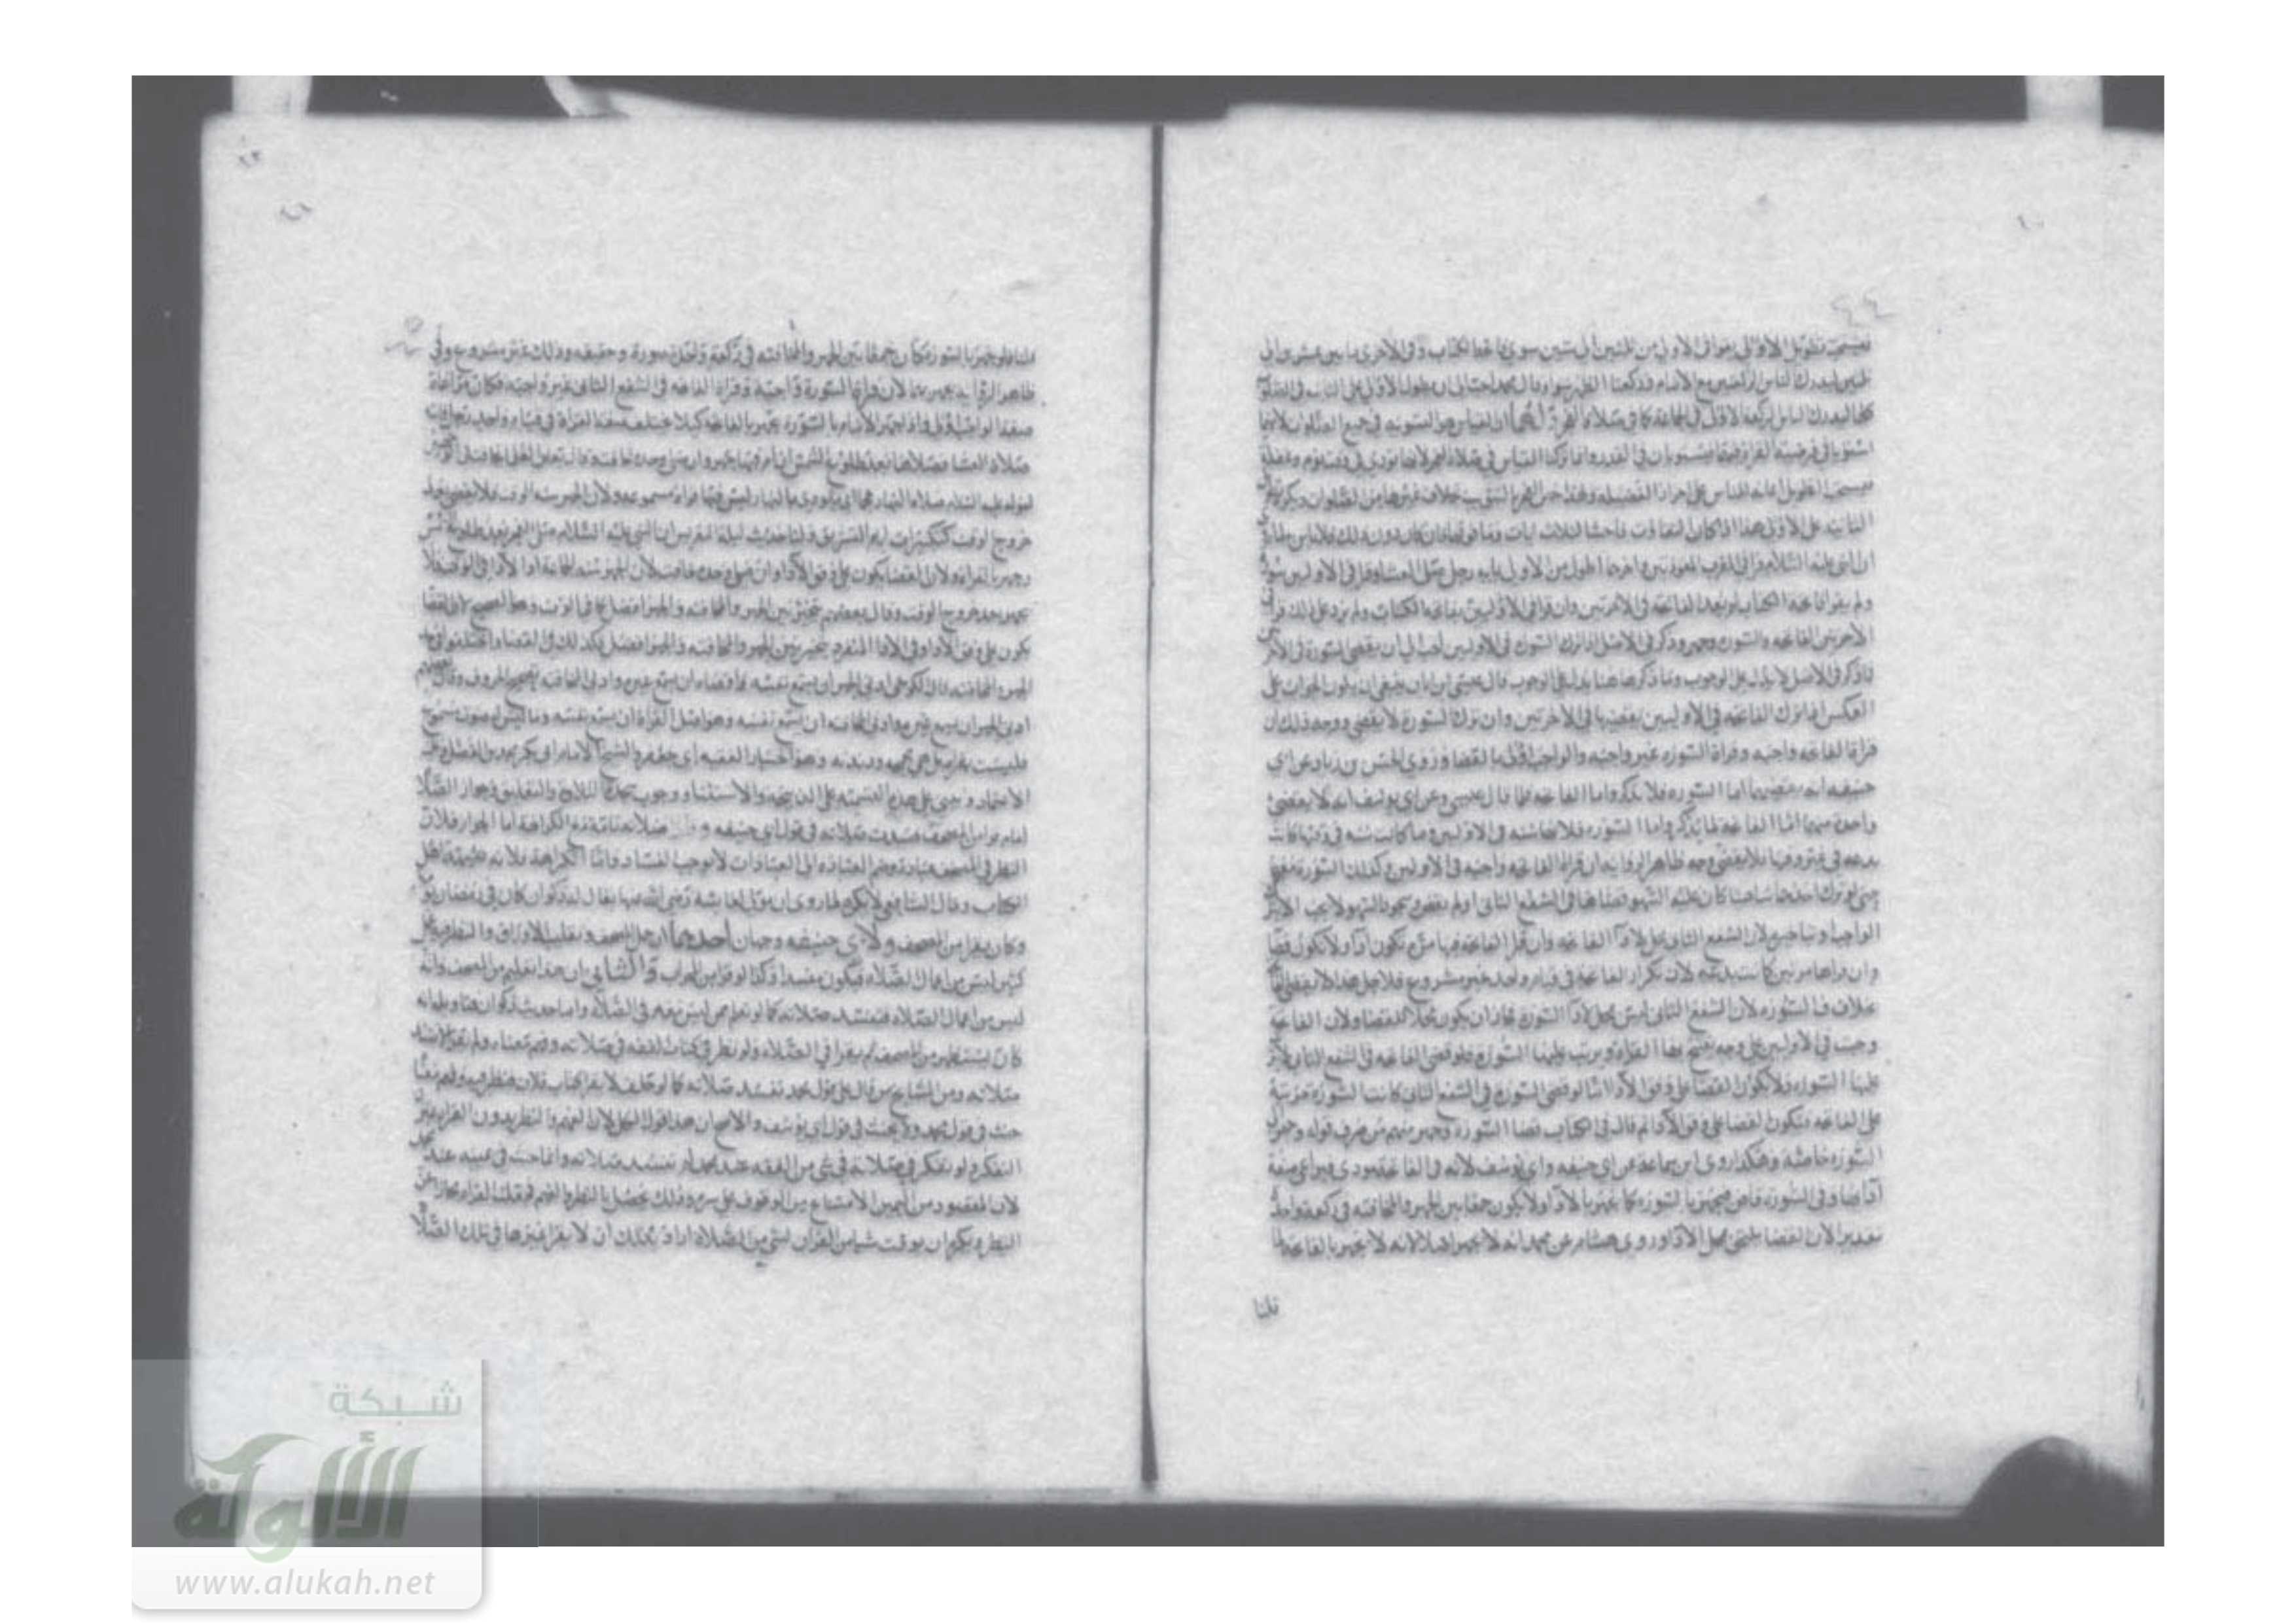 فيستحب تطويل الاولى يقرا في الاولى من ثلثين الى ستين سوى فاتحة الكتاب وفي الاخرى ما بين عشرين الى
ثلثين ليدرك الناس الركعتين مع الامام وركعتا الظهر سواء وقال محمد احب الى ان يطول الاولى على الثانيه في الصلوات
كلها ليدرك الناس الركعة الاولى في الجماعة كما في صلاة الفجر ولهما ان القياس هو التسويه في جميع الصلوات لانهما
استويا في فرضية القراة فيستويان في القدر وانما تركنا القياس في صلاة الفجر لانها تودى في وقت نوم وغفلة
فيستحب التطويل اعانه للناس على احراز الفضيله ولهذا خص الفجر بالتثويب بخلاف غيرها من الصلوات ويكره تطويل
الثانيه على الاولى هذا اذا كان التفاوت فاحشا ثلاث ايات وما فوقها فان كان دون ذلك فلا باس به
ان النبي عليه السلام قرا في المغرب المعوذتين واخرهما اطول من الاولى بايه رجل صلى العشا وقرا في الاوليين سورة
ولم يقرا فاتحة الكتاب لم يعد الفاتحه في الاخرتين وان قرا في الاوليين بفاتحه الكتاب ولم يزد على ذلك قرا في
الاخرتين الفاتحه والسوره وجهر وذكر في الاصل اذا ترك السوره في الاوليين احب الى ان يقضي السورة في الاخرتين
فما ذكر في الاصل لا يدل على الوجوب وما ذكر هاهنا يدل على الوجوب قال عيسى بن ابان ينبغي ان يكون الجواب على
العكس اذا ترك الفاتحه في الاوليين يقضيها في الاخرتين وان ترك السورة لا يقضي ووجه ذلك ان
قراة الفاتحه واجبه وقراة السوره غير واجبه والواجب اولى بالقضا وروى الحسن بن زياد عن ابي
حنيفه انه يقضيهما اما السوره فلما ذكر واما الفاتحه فلما قال عيسى وعن ابي يوسف انه لا يقضي
واحدة منهما اما الفاتحة لما يذكر واما السوره فلانها سنه في الاوليين وما كانت سنه في وقتها كانت
بدعه في غير وقتها فلا يقضي وجه ظاهر الروايه ان قراة الفاتحه واجبه في الاوليين وكذلك السورة
حتى لو ترك احدهما ساهيا كان عليه السهو قضاها في الشفع الثاني او لم يقض وسجود السهو لا يجب الا بترك
الواجب او تاخيره لان الشفع الثاني محل لاداء الفاتحه وان قرا الفاتحه فيها مرة تكون ادا ولا تكون قضا
وان قراها مرتين كانت بدعه لان تكرار الفاتحه في قيام واحد غير مشروع فلاجل هذا لا يقضي الفاتحة
بخلاف السوره لان الشفع الثاني ليس محل لادا السورة فجاز ان يكون محلا للقضا ولان الفاتحة
وجبت في الاوليين على وجه يفتتح بها القراة ويرتب عليها السورة فلو قضى الفاتحه في الشفع الثاني
عليها السوره فلا يكون القضا على وفق الادا اما لو قضى السوره في الشفع الثاني كانت السورة مرتبة
على الفاتحه فتكون القضا على وفق الادا ثم قال في الكتاب قضا السورة وجهر منهم من صرف قوله وجهر الى
السوره خاصة وهكذا روى ابن سماعة عن ابي حنيفه وابي يوسف لانه في الفاتحة مودي فيراعي صفة
ادايها وفي السورة قاض فيجهر بالسوره كما يجهر بالادا ولا يكون جمعا بين الجهر والمخافتة في ركعة واحدة
تقديرا لان القضا يلتحق بمحل الادا وروى هشام عن محمد انه لا يجهر اصلا لانه لا يجهر بالفاتحة لما
قلنا
قلنا فلو جهر بالسورة كان جمعا بين الجهر والمخافته في ركعة واحدة صورة وحقيقه وذلك غير مشروع وفي
ظاهر الروايه يجهر بهما لان قراة السورة واجبة وقراة الفاتحه في الشفع الثاني غير واجبه فكان مراعاة
صفة الواجب اولى واذا جهر الامام بالسورة يجهر بالفاتحة كيلا يختلف صفة القراة في قيام واحد رجل فاتته
صلاة العشا فصلاها بعد طلوع الشمس ان ام فيها جهر وان صلى وحده خافت وقال بعض العلما يخافت في الوجهين
لقوله عليه السلام صلاة النهار عجما اي ما يودى بالنهار ليس فيها قراة مسموعه ولان الجهر سنه الوقت فلا يقضى بعد
خروج الوقت كتكبيرات ايام التشريق ولنا حديث ليلة التعريس ان النبي عليه السلام صلى الفجر بعد طلوع الشمس
وجهر بالقراة ولان القضا يكون على وفق الادا وان صلى وحده خافت لان الجهر سنه الجماعة او الادا في الوقت فلا
يجهر بعد خروج الوقت وقال بعضهم يتخير بين الجهر والمخافته والجهر افضل كما في الوقت وهو الصحيح لان القضا
يكون على وفق الادا وفي الادا المنفرد يتخير بين الجهر والمخافته والجهر افضل فكذلك في القضا واختلفوا في حد
الجهر والمخافته قال الكرخي ادنى الجهر ان يسمع نفسه واقصاه ان يسمع غيره وادنى المخافته تصحيح الحروف وقال بعضهم
ادنى الجهر ان يسمع غيره وادنى المخافته ان يسمع نفسه وهو اصل القراة ان يسمع نفسه وما ليس بصوت مسموع
فليست بقراة بل هي مجمجه ودندنه وهو اختيار الفقيه ابي جعفر والشيخ الامام ابي بكر محمد بن الفضل وعليه
الاعتماد ويبني على هذا التسميه على الذبيحه والاستثناء ووجوب سجدة التلاوة والتعليق وجواز الصلاة
امام قرا من المصحف فسدت صلاته في قول ابي حنيفه و صلاته تامة مع الكراهة اما الجواز فلان
النظر في المصحف عبادة وضم العبادة الى العبادات لا يوجب الفساد واما الكراهة فلانه تشبه باهل
الكتاب وقال الشافعي لا يكره لما روي ان مولى لعايشة رضي الله عنها يقال له ذكوان كان في رمضان يوم
وكان يقرا من المصحف ولابي حنيفه وجهان احدهما ان حمل المصحف وتقليب الاوراق والنظر فيه عمل
كثير ليس من اعمال الصلاه فيكون مفسدا وكذا لو قرا من المحراب والثاني ان هذا تعليم من المصحف وانه
ليس من اعمال الصلاه فتفسد صلاته كما لو تعلم ممن ليس معه في الصلاة واما حديث ذكوان هذا وبلغنا انه
كان يستظهر من المصحف ثم يقرا في الصلاه ولو نظر في كتاب الفقه في صلاته وفهم معناه ولم يقرا لا تفسد
صلاته ومن المشايخ من قال على قول محمد تفسد صلاته كما لو حلف لا يقرا كتاب فلان فنظر فيه وفهم معناه
حنث في قول محمد ولا يحنث في قول ابي يوسف والاصح ان هذا قول الكل لان الفهم والنظر بدون القراة
التفكر ولو تفكر في صلاته في شي من الفقه عند محمد لم تفسد صلاته وانما حنث في يمينه عند محمد
لان المقصود من اليمين الامتناع من الوقوف على سره وذلك يحصل بالنظر والفهم فجعلنا القراة مجازا عن
النظر ويكره ان يوقت شيا من القران لشي من الصلاة اراد بذلك ان لا يقرا غيرها في تلك الصلاة
شبكة
الألوكة
www.alukah.net